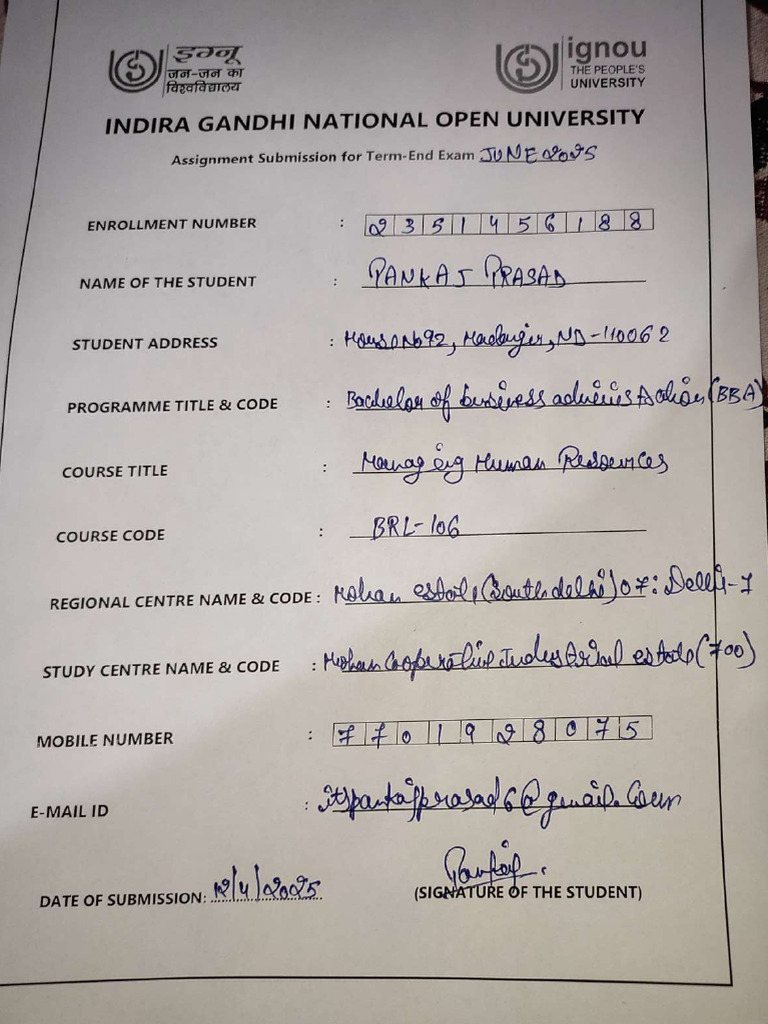 इग्नू
जन-जन का
विश्वविद्यालय
ignou
THE PEOPLE'S
UNIVERSITY
INDIRA GANDHI NATIONAL OPEN UNIVERSITY
Assignment Submission for Term-End Exam JUNE 2025
ENROLLMENT NUMBER : 2351456188
NAME OF THE STUDENT : PANKAJ PRASAD
STUDENT ADDRESS : House No 92, Madangir, ND-110062
PROGRAMME TITLE & CODE : Bachelor of business administration (BBA)
COURSE TITLE : Managing Human Resources
COURSE CODE : BRL-106
REGIONAL CENTRE NAME & CODE : Mohan estate (South delhi) 07: Delhi-7
STUDY CENTRE NAME & CODE : Mohan Cooperative Industrial estate (700)
MOBILE NUMBER : 7701928075
E-MAIL ID : itspankajprasad6@gmail.com
Pankaj.
DATE OF SUBMISSION: 12/4/2025 (SIGNATURE OF THE STUDENT)